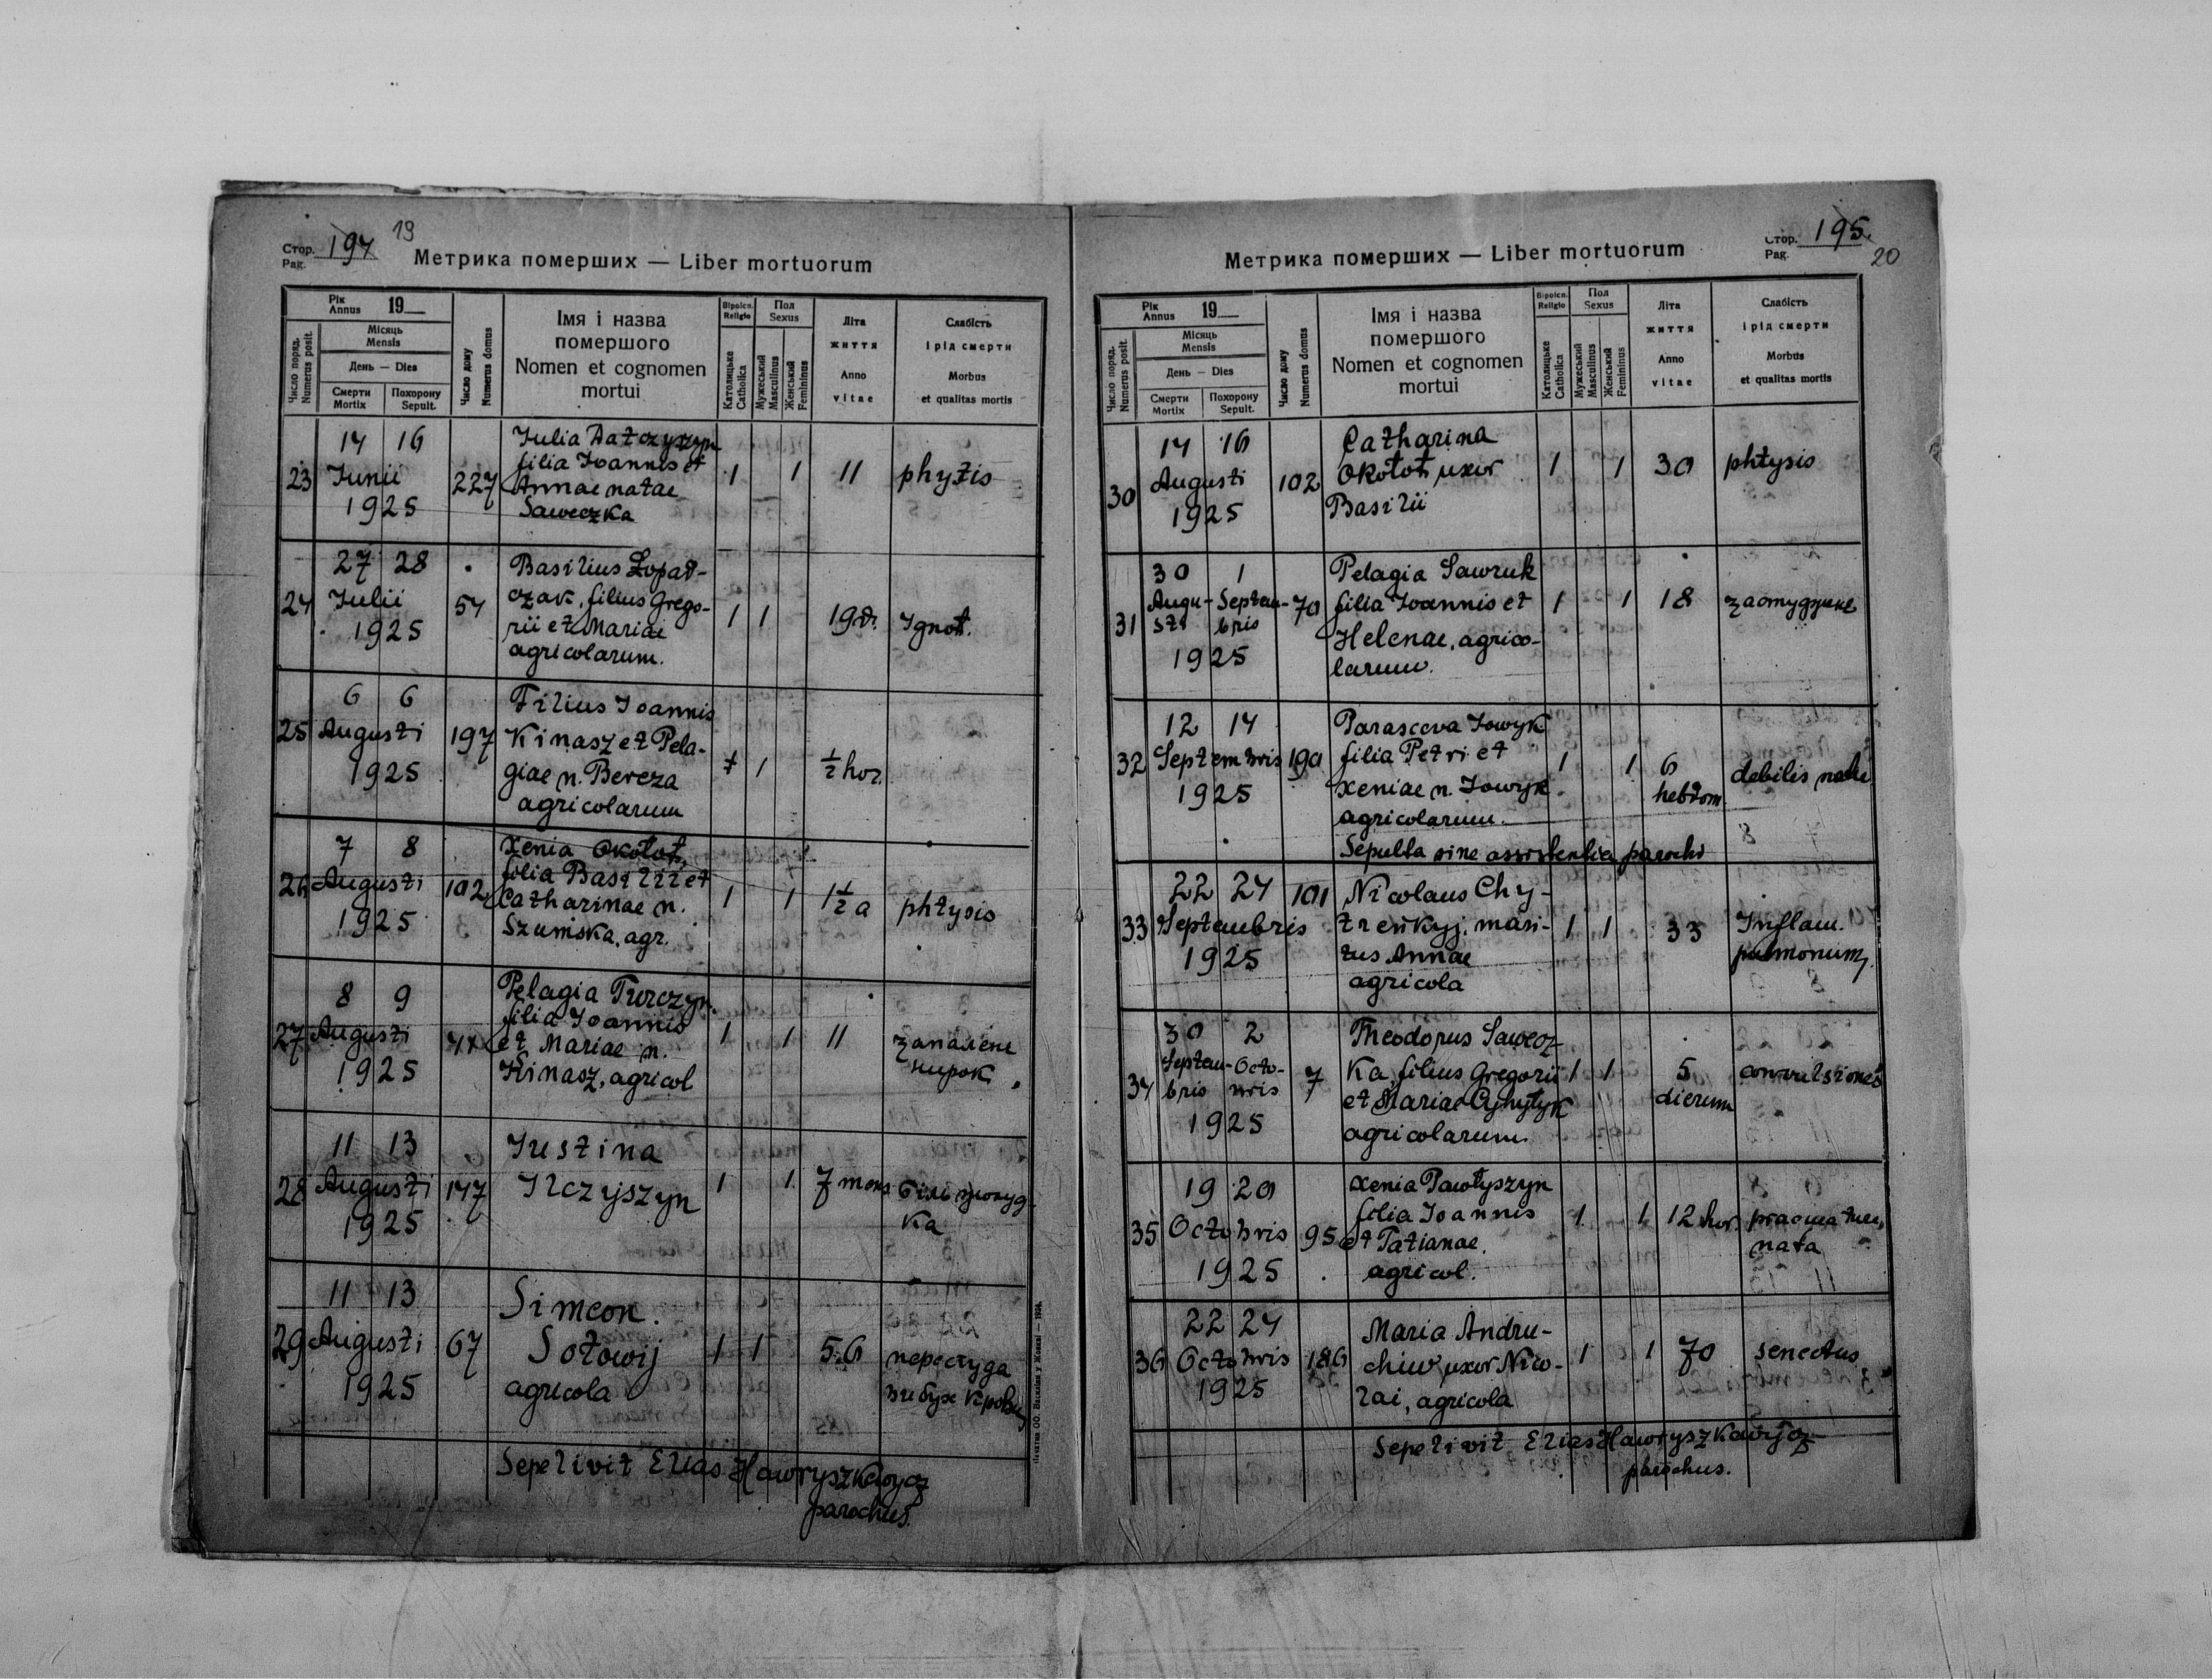 Стор. 194 19
Pag.
Метрика померших — Liber mortuorum
Рік 19
Annus
Число поряд.
Numerus posit.
Місяць
Mensis
День — Dies
Смерти Похорону
Mortix Sepult.
Число дому
Numerus domus
Імя і назва
помершого
Nomen et cognomen
mortui
Віроісп.
Religio
Католицьке
Catholica
Пол
Sexus
Мужеський
Masculinus
Женський
Femininus
Літа
життя
Anno
vitae
Слабість
і рід смерти
Morbus
et qualitas mortis
14 16
23 Junii 227
1925
Julia Datczyszyn
filia Joannis et
Annae natae
Saweczka
1 1 11 phytis
27 28
24 Julii 54
1925
Basilius Łopad-
czak, filius Grego-
rii et Mariae
agricolarum.
1 1 19 d. Ignot.
6 6
25 Augusti 197
1925
Filius Joannis
Kinasz et Pela-
giae n. Bereza
agricolarum
1 ½ hor.
7 8
26 Augusti 102
1925
Xenia Okołot,
filia Basilii et
Catharinae n.
Szumska, agr.
1 1 1½ a phtysis
8 9
27 Augusti
1925
Pelagia Turczyn
filia Joannis
et Mariae n.
Kinasz, agricol
1 1 11 запалене
нирок
11 13
28 Augusti 147
1925
Justina
Ilczyszyn
1 1 7 mens біль жолуд
ка
11 13
29 Augusti 67
1925
Simeon
Sołowij
agricola
1 1 56 перестуда
вибух крови
Sepelivit Elias Hawryszkewycz
parochus.
Стор. 195
Pag. 20
Метрика померших — Liber mortuorum
Рік 19
Annus
Число поряд.
Numerus posit.
Місяць
Mensis
День — Dies
Смерти Похорону
Mortix Sepult.
Число дому
Numerus domus
Імя і назва
помершого
Nomen et cognomen
mortui
Віроісп.
Religio
Католицьке
Catholica
Пол
Sexus
Мужеський
Masculinus
Женський
Femininus
Літа
життя
Anno
vitae
Слабість
і рід смерти
Morbus
et qualitas mortis
14 16
30 Augusti 102
1925
Catharina
Okołot, uxor
Basilii
1 1 30 phtysis
30 1
31 Augu- Septem- 70
sti bris
1925
Pelagia Sawruk
filia Joannis et
Helenae, agrico-
larum.
1 1 18 застуджене
12 14
32 Septembris 190
1925
Parasceva Jowyk
filia Petri et
Xeniae n. Jowyk
agricolarum.
Sepulta sine assistentia parochi
1 1 6
hebdom debilis
22 24 101
33 Septembris
1925
Nicolaus Chy-
treńkyj, mari-
tus Annae
agricola
1 1 33 Inflam.
pulmonum
30 2
34 Septem- Octo- 7
bris bris
1925
Theodorus Sawecz-
ka, filius Gregorii
et Mariae
agricolarum.
1 1 5
dierum convulsiones
19 20
35 Octobris 95
1925
Xenia Pawłyszyn
filia Joannis
et Tatianae
agricol.
1 1 12 hor. praematura
nata
22 24
36 Octobris 186
1925
Maria Andru-
chiw, uxor Nico-
lai, agricola
1 1 70 senectus
Sepelivit Elias Hawryszkewycz
parochus.